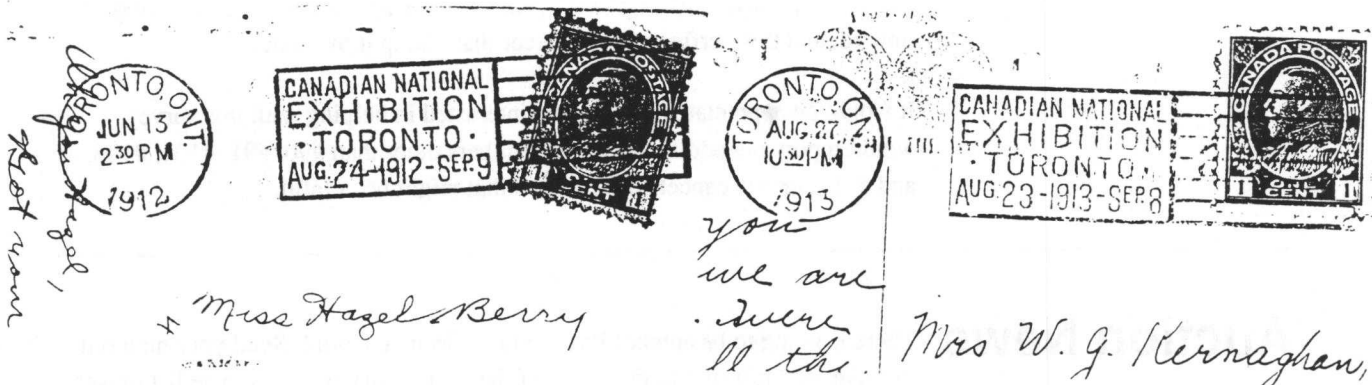 TORONTO, ONT.
JUN 13
2 30 PM
1912
CANADIAN NATIONAL
EXHIBITION
· TORONTO ·
AUG. 24-1912-SEP. 9
CANADA POSTAGE
1 ONE CENT 1
Hazel,
Got your
Miss Hazel Berry
TORONTO, ONT.
AUG. 27
10 30 PM
1913
CANADIAN NATIONAL
EXHIBITION
· TORONTO ·
AUG. 23-1913-SEP. 8
CANADA POSTAGE
1 ONE CENT 1
you
we are
were
ll the
Mrs W. G. Kernaghan,